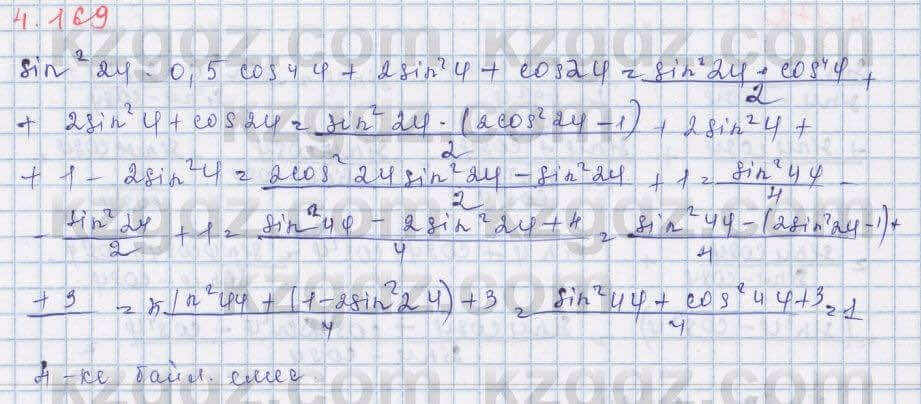 4.169
sin² 2y · 0,5 cos 4y + 2sin² y + cos2y = sin² 2y · cos⁴y / 2 +
+ 2sin² y + cos 2y = sin² 2y · (2cos² 2y - 1) / 2 + 2sin² y +
+ 1 - 2sin² y = 2cos² 2y sin² 2y - sin² 2y / 2 + 1 = sin² 4y / 4 -
- sin² 2y / 2 + 1 = sin² 4y - 2sin² 2y + 4 / 4 = sin² 4y - (2sin² 2y - 1) + / 4
+ 3 = sin² 4y + (1 - 2sin² 2y) + 3 / 4 = sin² 4y + cos² 4y + 3 / 4 = 1
y -ке байл. емес
kzgdz.com